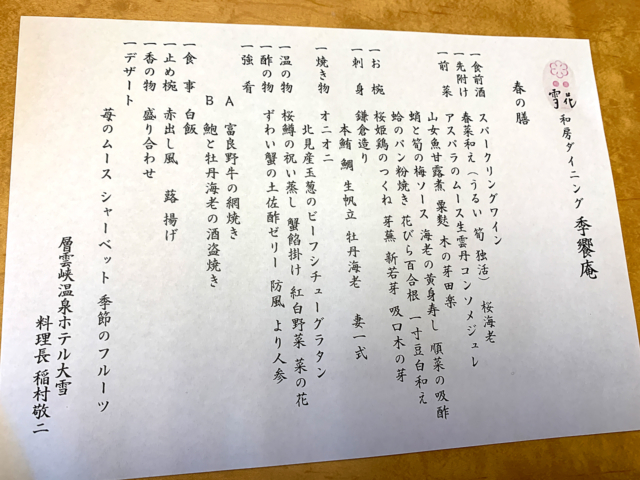 雪花 和房ダイニング 季饗庵
春の膳
一食前酒 スパークリングワイン
一先附け 春菜和え(うるい 筍 独活) 桜海老
アスパラのムース生雲丹コンソメジュレ
一前 菜 山女魚甘露煮 粟麩 木の芽田楽
蛸と筍の梅ソース 海老の黄身寿し 順菜の吸酢
蛤のパン粉焼き 花びら百合根 一寸豆白和え
一お 椀 桜姫鶏のつくね 芽蕪 新若芽 吸口木の芽
一刺 身 鎌倉造り
本鮪 鯛 生帆立 牡丹海老 妻一式
一焼き物 オニオニ
北見産玉葱のビーフシチューグラタン
一温の物 桜鱒の祝い蒸し 蟹餡掛け 紅白野菜 菜の花
一酢の物 ずわい蟹の土佐酢ゼリー 防風 より人参
一強 肴
A 富良野牛の網焼き
B 鮑と牡丹海老の酒盗焼き
一食 事 白飯
一止め椀 赤出し風 蕗 揚げ
一香の物 盛り合わせ
一デザート
苺のムース シャーベット 季節のフルーツ
層雲峡温泉ホテル大雪
料理長 稲村敬二